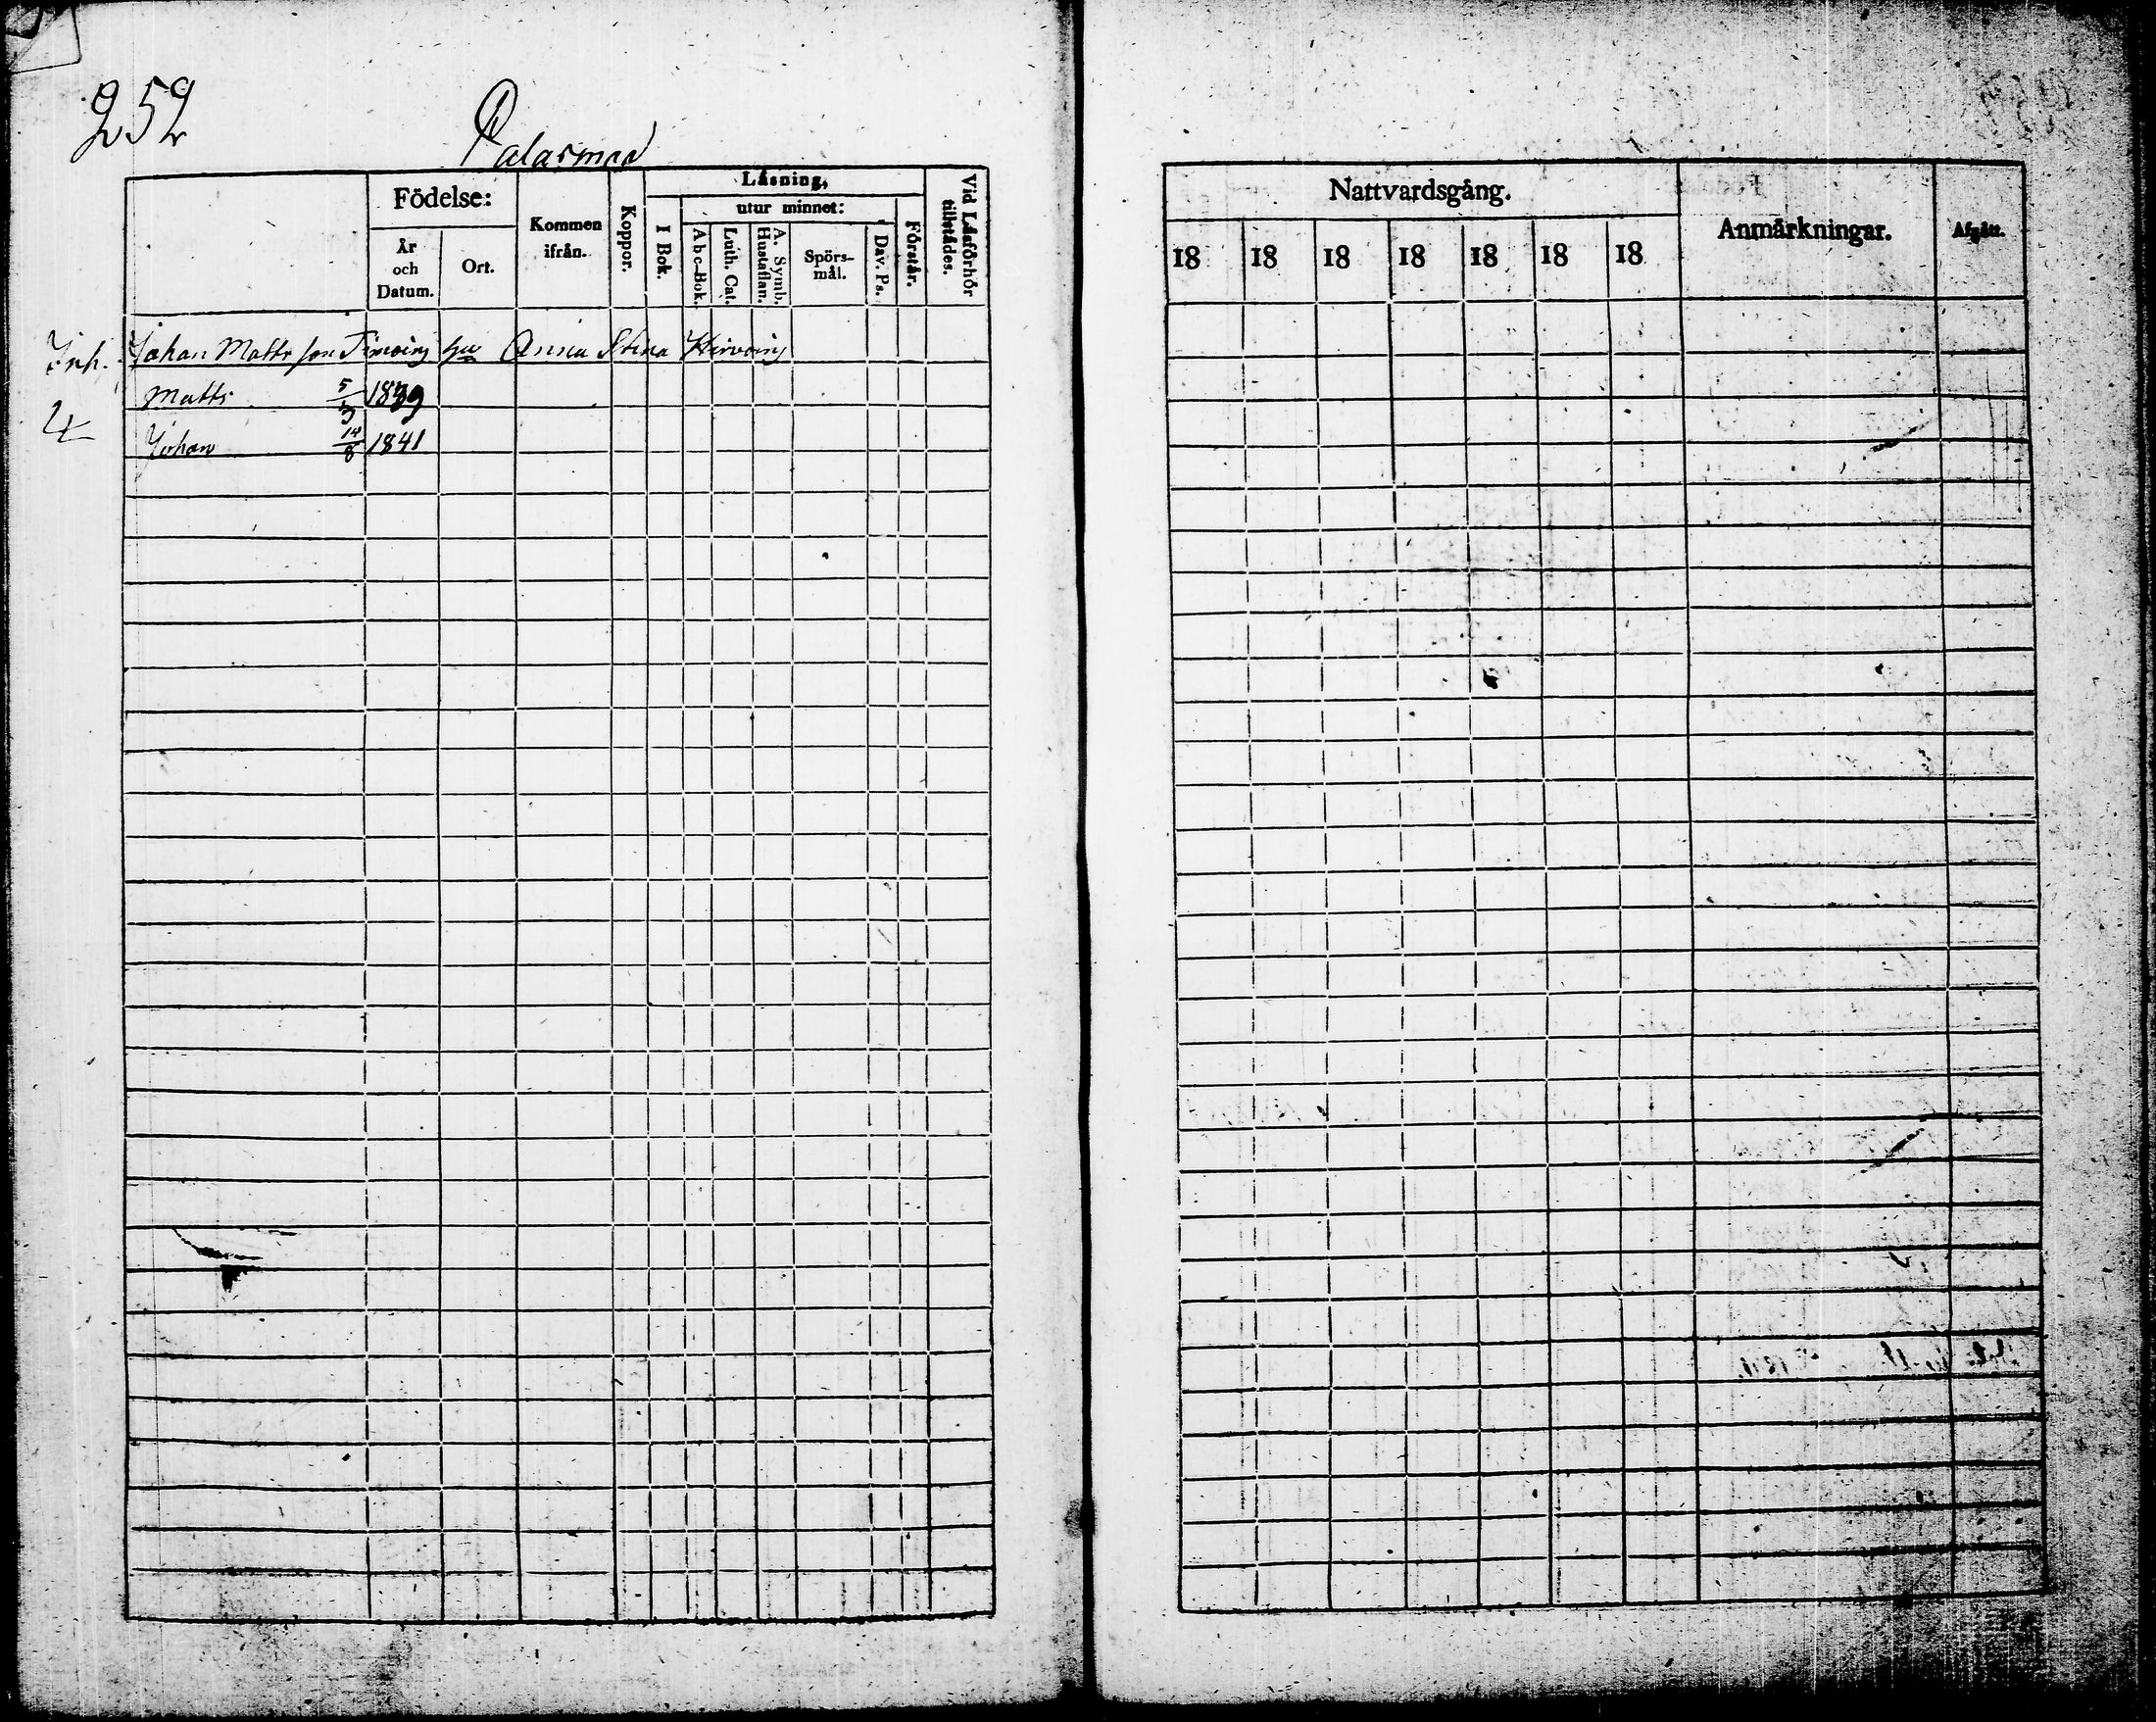 252
Palasmaa
Födelse:
År och Datum.
Ort.
Kommen ifrån.
Koppor.
Läsning,
I Bok.
utur minnet:
Abc-Bok.
Luth. Cat.
A. Symb. Hustaflan.
Spörs-mål.
Dav. Ps.
Förstår.
Vid Läsförhör tillstädes.
Nattvardsgång.
18 18 18 18 18 18 18
Anmärkningar.
Afgått.
Inh. Johan Matts son hu Anna Stina Hirvoin
Matts 5/3 1839
Johan 14/8 1841